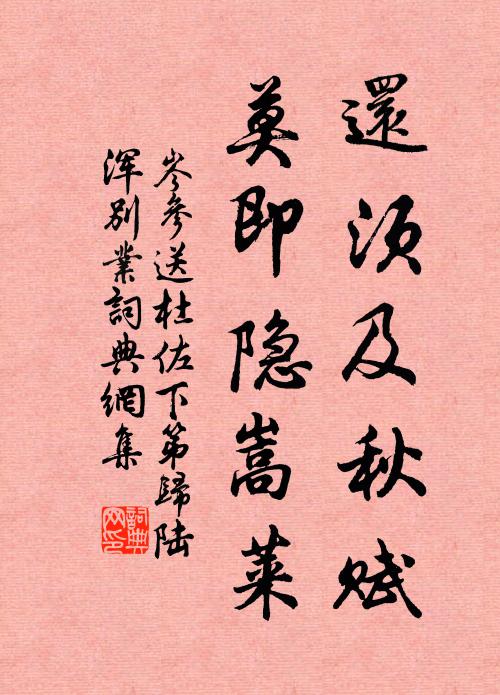 還須及秋賦
莫即隐嵩莱
岑參送杜佐下第歸陸
渾別業詞典網集
詞典网印